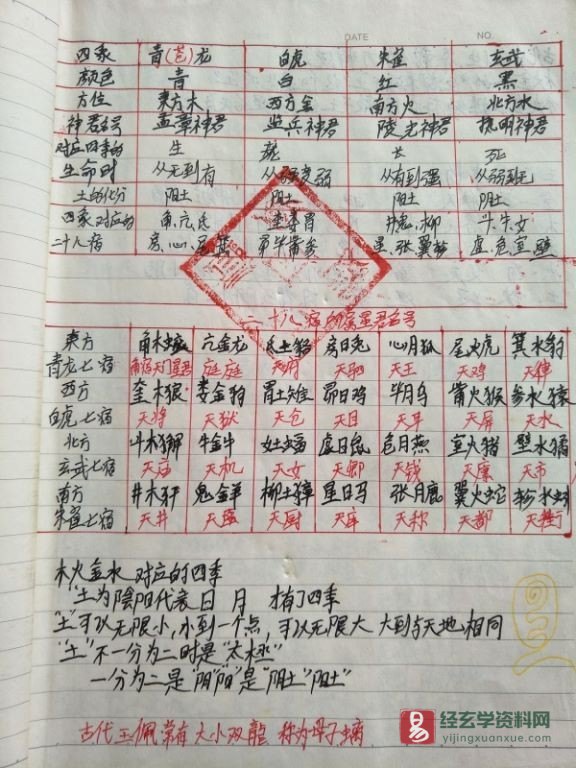 DATE NO.
四象 青(苍)龙 白虎 朱雀 玄武
颜色 青 白 红 黑
方位 東方木 西方金 南方火 北方水
神君名号 孟章神君 监兵神君 陵光神君 执明神君
对应四季的 生 老 长 死
生命时 从无到有 从强变弱 从有到强 从弱到无
土的化分 阳土 阴土 阳土 阴土
四象对应的 角、亢、氐 奎娄胃 井鬼、柳 斗、牛、女
二十八宿 房、心、尾、箕 昴毕觜参 星、张、翼、轸 虚、危、室、壁
二十八宿的宿星君名号
東方 角木蛟 亢金龙 氐土貉 房日兔 心月狐 尾火虎 箕水豹
青龙七宿 角宿天门星君 庭庭 天府 天驷 天王 天鸡 天律
西方 奎木狼 娄金狗 胃土雉 昴日鸡 毕月乌 觜火猴 参水猿
白虎七宿 天将 天狱 天仓 天目 天耳 天屏 天水
北方 斗木獬 牛金牛 女土蝠 虚日鼠 危月燕 室火猪 壁水㺄
玄武七宿 天庙 天机 天女 天卿 天钱 天廪 天市
南方 井木犴 鬼金羊 柳土獐 星日马 张月鹿 翼火蛇 轸水蚓
朱雀七宿 天井 天匮 天厨 天库 天秤 天都 天街
木火金水 对应的四季
"土"为陰阳代表 日 月 才有了四季
"土"可以无限小,小到一个点,可以无限大 大到与天地相同
"土"不一分为二时是"太極"
一分为二是"阴""阳"是"阴土""阳土"
古代玉佩常有大小双龍 称为母子螭
易 经玄学资料网
yijingxuanxue.com